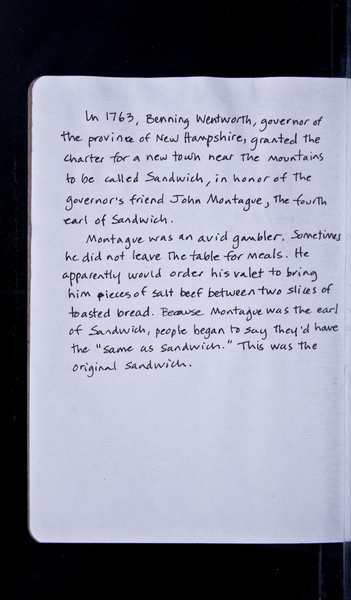 In 1763, Benning Wentworth, governor of
the province of New Hampshire, granted the
charter for a new town near the mountains
to be called Sandwich, in honor of the
governor's friend John Montague, the fourth
earl of Sandwich.
Montague was an avid gambler. Sometimes
he did not leave the table for meals. He
apparently would order his valet to bring
him pieces of salt beef between two slices of
toasted bread. Because Montague was the earl
of Sandwich, people began to say they'd have
the "same as Sandwich." This was the
original sandwich.